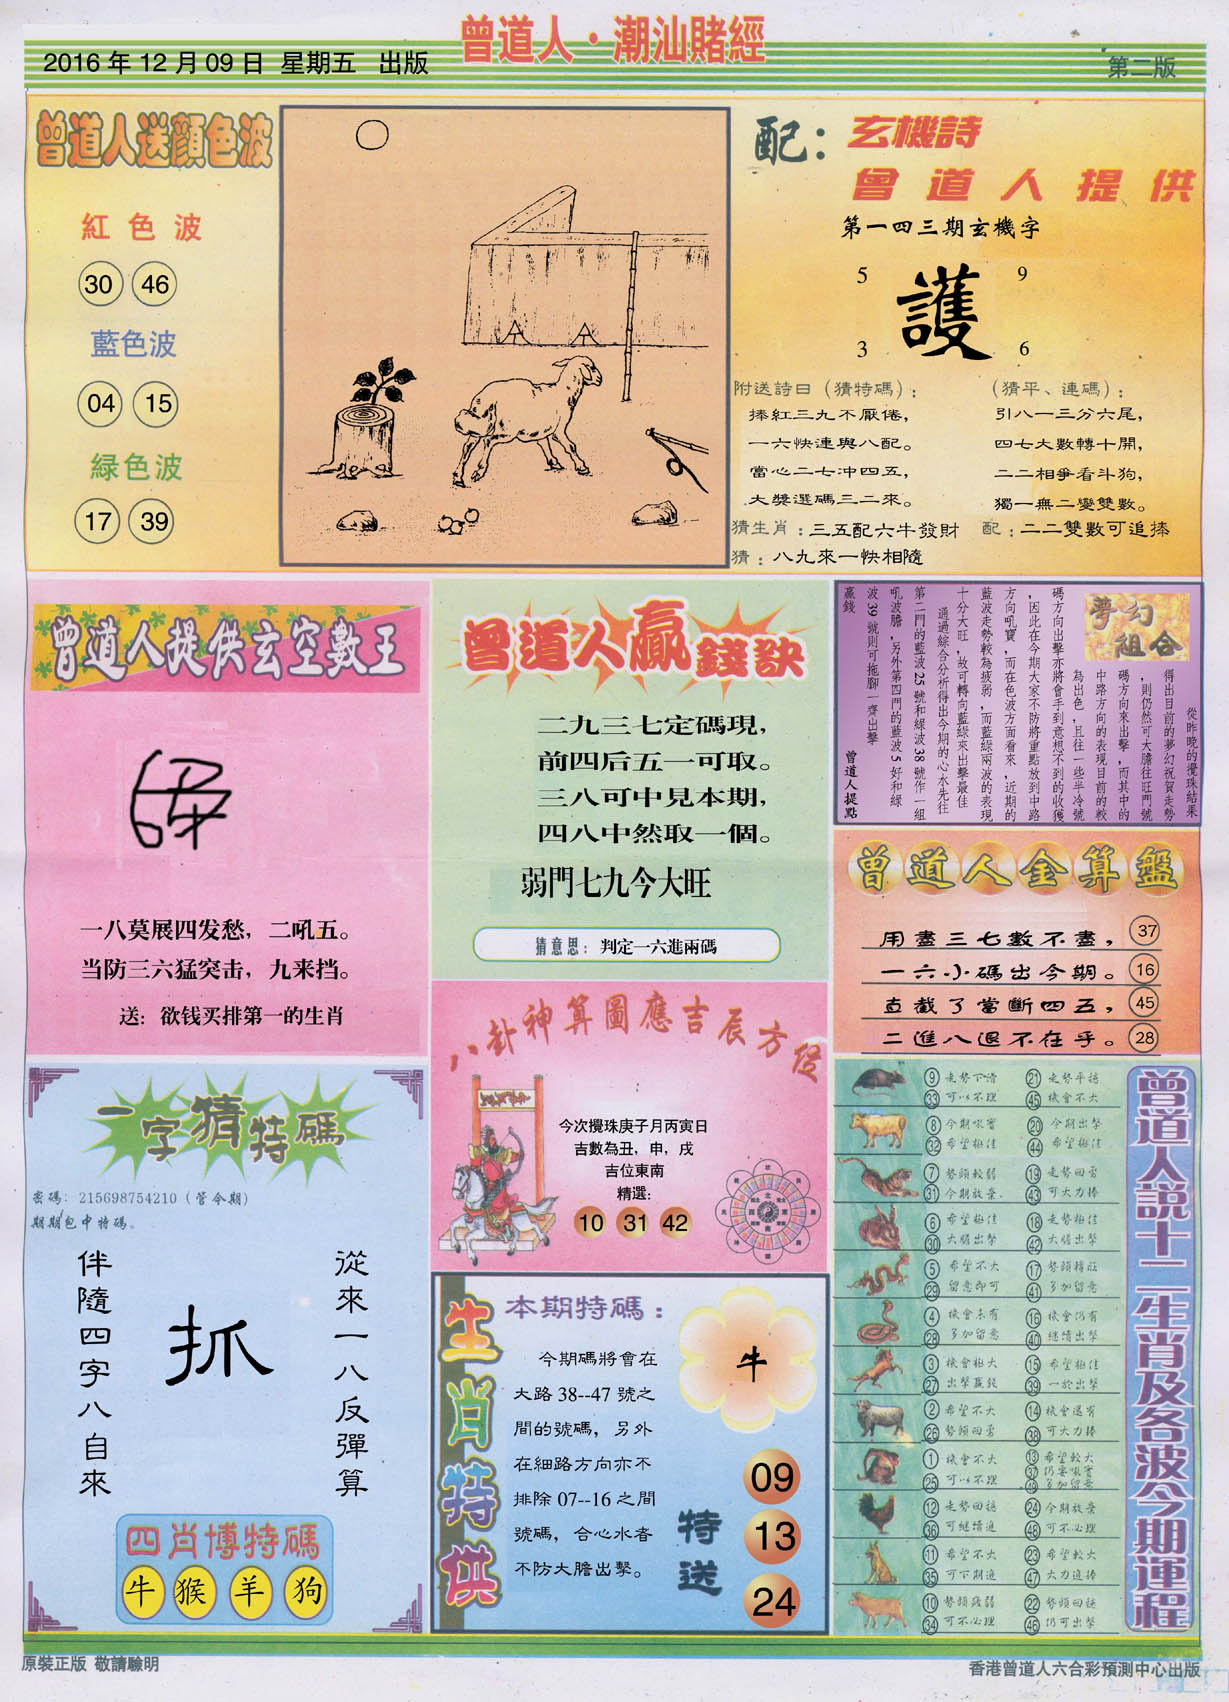 曾道人·潮汕賭經
2016 年 12 月 09 日 星期五 出版
第二版
曾道人送顏色波
紅色波
30 46
藍色波
04 15
緑色波
17 39
配：玄機詩
曾道人提供
第一四三期玄機字
5 9
護
3 6
附送詩曰（猜特碼）：
捧紅三九不厭倦，
一六快連與八配。
當心二七冲四五，
大獎選碼三二來。
（猜平、連碼）：
引八一三分六尾，
四七大數轉十開，
二二相爭看斗狗，
獨一無二變雙數。
猜生肖：三五配六牛發財
配：二二雙數可追捧
猜：八九來一快相隨
曾道人提供玄空數王
一八莫展四发愁，二吼五。
当防三六猛突击，九来挡。
送：欲钱买排第一的生肖
曾道人贏錢訣
二九三七定碼現，
前四后五一可取。
三八可中見本期，
四八中然取一個。
弱門七九今大旺
猜意思：判定一六進兩碼
夢幻
組合
從昨晚的攪珠結果
得出目前的夢幻祝賀走勢
，則仍然可大膽往旺門號
碼方向來出擊，而其中的
中路方向的表現目前的較
為出色，且往一些半冷號
碼方向出擊亦將會手到意想不到的收獲
，因此在今期大家不防將重點放到中路
方向吼寶，而在色波方面看來，近期的
藍波走勢較為疲弱，而藍綠兩波的表現
十分大旺，故可轉向藍綠來出擊最佳
通過綜合分析得出今期的心水先往
第二門的藍波 25 號和綠波 38 號作一組
吼波膽，另外第四門的藍波 5 好和綠
波 39 號則可拖腳一齊出擊
贏錢
曾道人提點
曾道人金算盤
用盡三七數不盡， 37
一六小碼出今期。 16
直截了當斷四五， 45
二進八退不在乎。 28
八卦神算圖應吉辰方位
今次攪珠庚子月丙寅日
吉數為丑，申，戌
吉位東南
精選：
10 31 42
一字猜特碼
密碼：215698754210（管今期）
期期包中特碼。
從來一八反彈算
抓
伴隨四字八自來
四肖博特碼
牛 猴 羊 狗
生肖特供
本期特碼：
今期碼將會在
大路 38--47 號之
間的號碼，另外
在細路方向亦不
排除 07--16 之間
號碼，合心水者
不防大膽出擊。
牛
特送
09
13
24
曾道人說十二生肖及各波今期運程
9 走勢下滑 21 走勢平穩
33 可以不理 45 機會不大
8 今期吼寶 20 今期出擊
32 希望極佳 44 希望極佳
7 勢頭較弱 19 走勢回勇
31 今期放棄 43 可大力捧
6 希望極佳 18 走勢極佳
30 大膽出擊 42 大膽出擊
5 希望不大 17 勢頭轉旺
29 留意即可 41 多加留意
4 機會未有 16 機會仍有
28 多加留意 40 繼續出擊
3 機會極大 15 希望極佳
27 出擊贏錢 39 一於出擊
2 希望不大 14 機會還有
26 勢頭回勇 38 可大力捧
1 機會不大 13 希望較大
25 可以不理 37 仍要吼實
49 多加留意
12 走勢回穩 24 今期放棄
36 可繼續追 48 可不必理
11 希望不大 23 希望較大
35 可下期追 47 大力追捧
10 勢頭疲弱 22 勢頭回穩
34 可不必理 46 仍可出擊
原裝正版 敬請驗明
香港曾道人六合彩預測中心出版